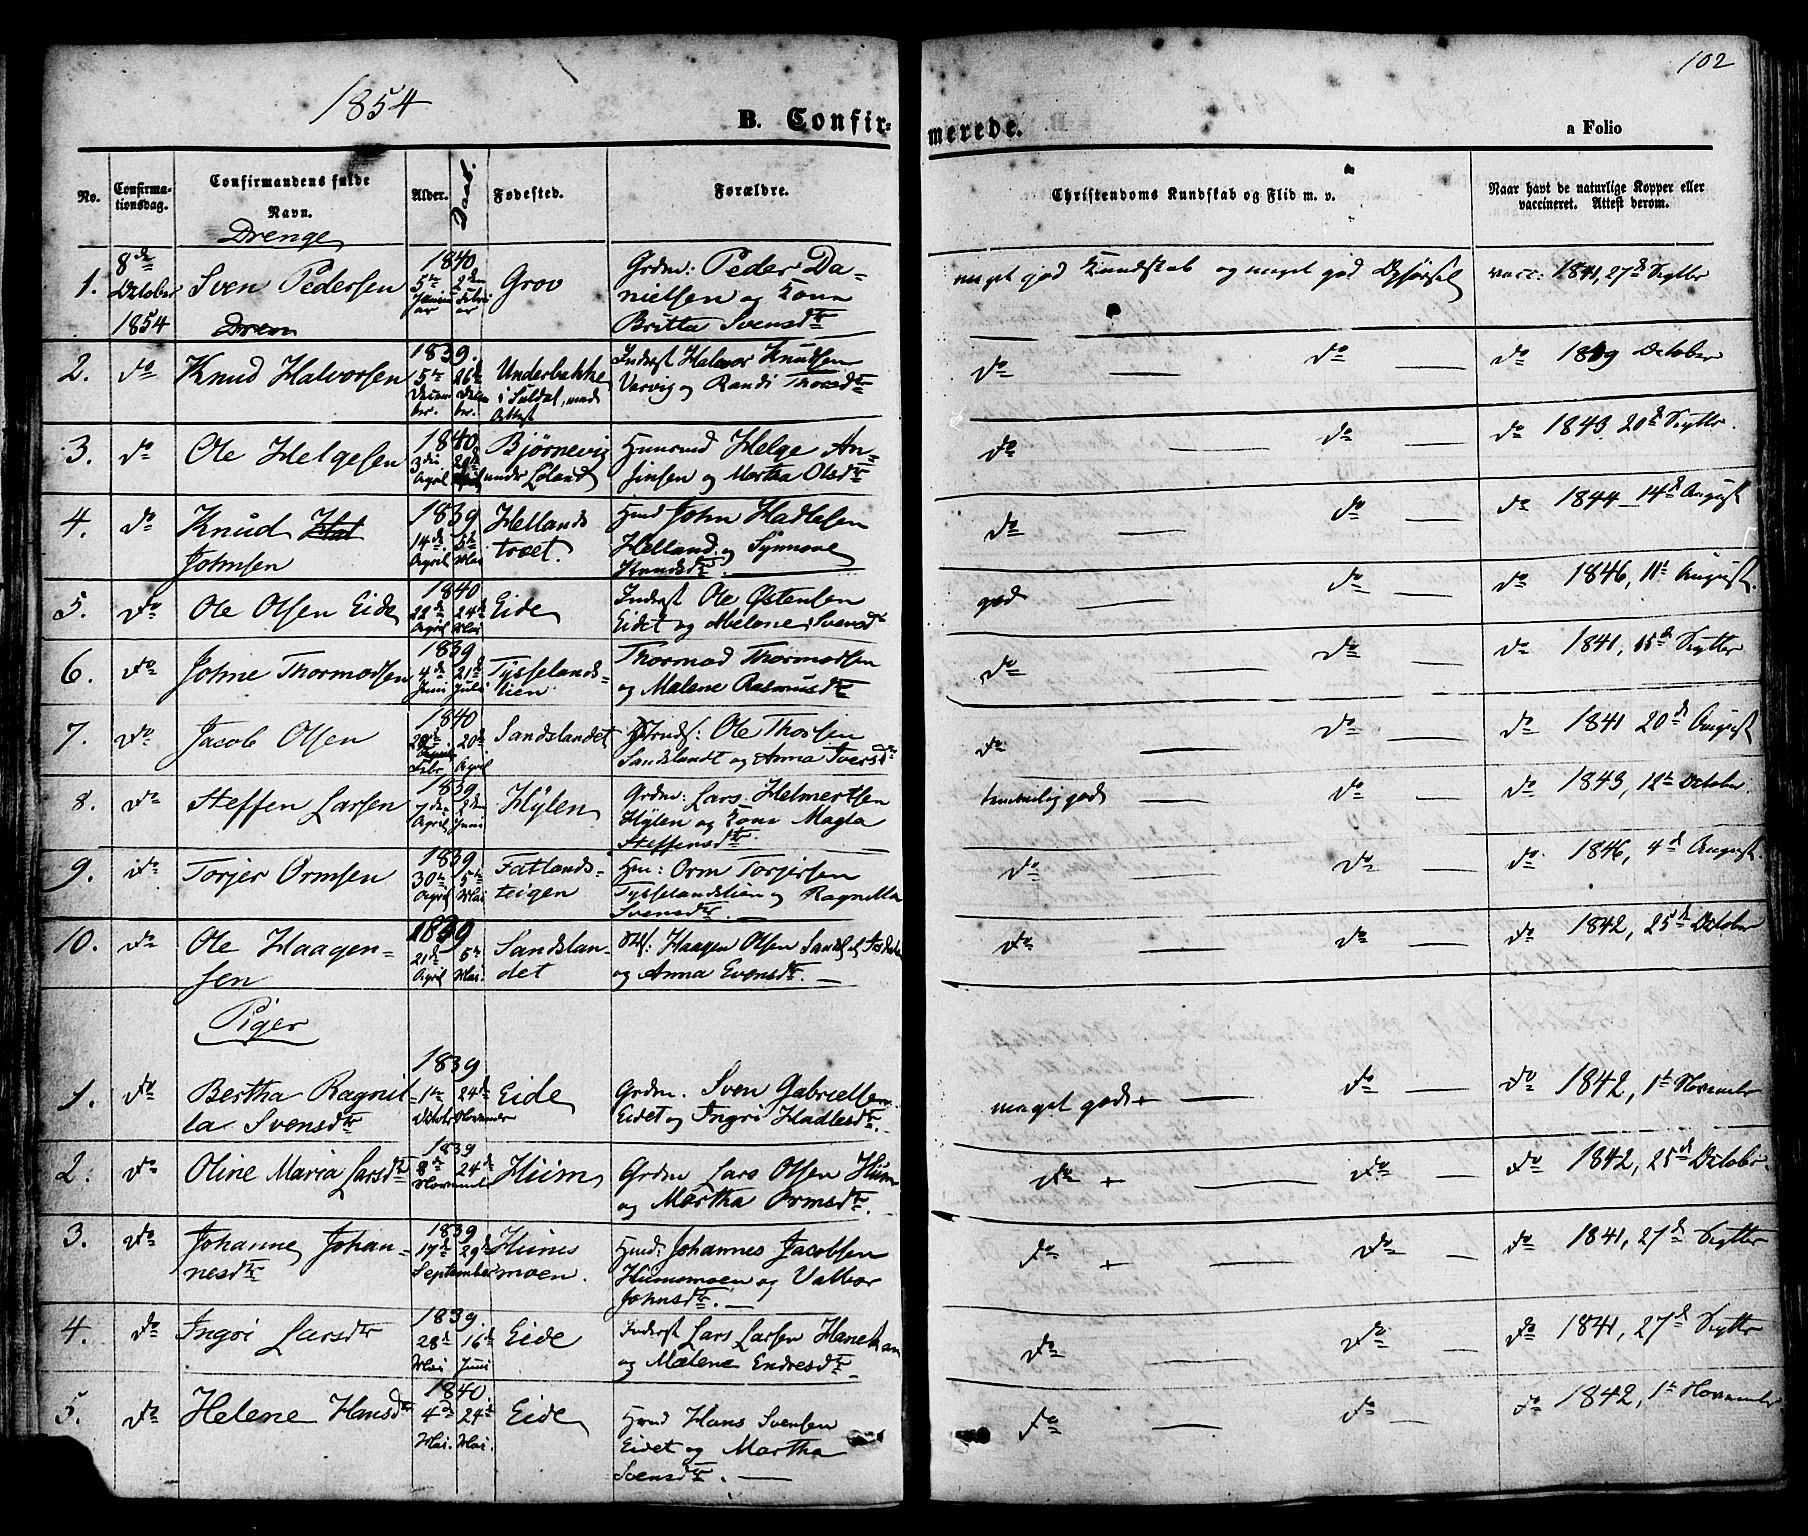 102
1854
B. Confirmerede.
a Folio
No.
Confirmationsdag.
Confirmandens fulde Navn.
Alder.
Daab.
Fødested.
Forældre.
Christendoms Kundskab og Flid m. v.
Naar havt de naturlige Kopper eller vaccineret. Attest derom.
Drenge
1. 8de October 1854 Sven Pedersen 1840 5te Januar 2den Februar Grov Grdm: Peder Danielsen og Kone Britta Svensdtr meget god Kundskab og meget god Opførsel vacc: 1841, 27d Septbr
Dren
2. do Knud Halvorsen 1839. 5te December 26de December Underbakke i Suldal, med Attest Inderst Halvor Knudsen Varvig og Randi Thorsdtr do — do — do October
3. do Ole Helgesen 1840 3die April 20de April Bjørnevig under Løland Huusmd Helge An-
sinsen og Martha Olsdtr do — do — do 1843 20d Septbr.
4. do Knud Johnsen 1839 14de April 5te Mai Hellandstræet. Hmd John Hadlesen Helland og Synnove Knudsdtr. do — do — do 1844 – 14d August
5. do Ole Olsen Eide 1840 22de April 24de Mai Eide Inderst Ole Østensen Eidet og Malene Svensd god — do — do 1846, 11t August.
6. do Johne Thormodsen 1839 4de Juni 21de Juli Tysselandslien Thormod Thormodsen og Malene Rasmusdtr do — do — do 1841, 15d Septbr
7. do Jacob Olsen 1840 Febr 20de April Sandslandet Ole Thorsen Sandslandt og Anna Iversdtr do — do — do 1841 20d August
8. do Steffen Larsen 1839 7de April 2den Juni Hylen Grdm: Lars Helmertsen Hylen og Kone Magla Steffensdtr temmelig god — do — do 1843, 12te October.
9. do Torjer Ormsen 1839. 30te April 5te Mai Fatlandsteigen Hm: Orm Torjersen Tysselandslien og Ragnilla Svensdtr. — do — do — do 1846, 4d August
10. do Ole Haagensen 1839 21de April 5te Mai. Sandslandet Haagen Olsen og Anna Evensdtr. — do — do — do 1842, 25d October
Piger
1. do Bertha Ragnilla Svensdtr 1839 1te October 24de November Eide Grdm. Sven Gabrielsen Eidet og Ingri Hadlesdtr. meget god + — do — do 1842, 1t November
2. do Oline Maria Larsdtr 1839 8de 24de November Huim Grdm Lars Olsen Huim og Martha Ormsdtr. do + — do — do 1842, 25d Octobr.
3. do Johanne Johannesdtr 1839 17de 29de September Huimsmoen. Hmd: Johannes Jacobsen Huimsmoen og Valbor Johnsdtr. — do + — do — do 1841, 27d Septbr
4. do Ingri Larsdtr 1839. 28de Mai 16de Juni Eide Inderst Lars Larsen Hanekam og Malene Endresdtr. do — do — do 1841, 27d Septbr
5. do Helene Hansdtr 1840. 4de Mai. 24de Mai. Eide Hmd Hans Svensen Eidet og Martha Svensdtr. — do — do — do 1842, 1t November